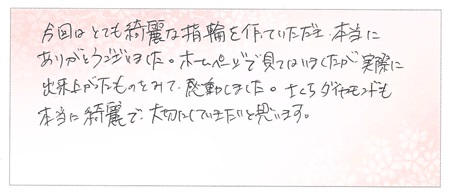 今回はとても綺麗な指輪を作っていただき、本当に
ありがとうございました。ホームページで見てはいましたが実際に
出来上がったものをみて、感動しました。さくらダイヤモンドも
本当に綺麗で、大切にしていきたいと思います。